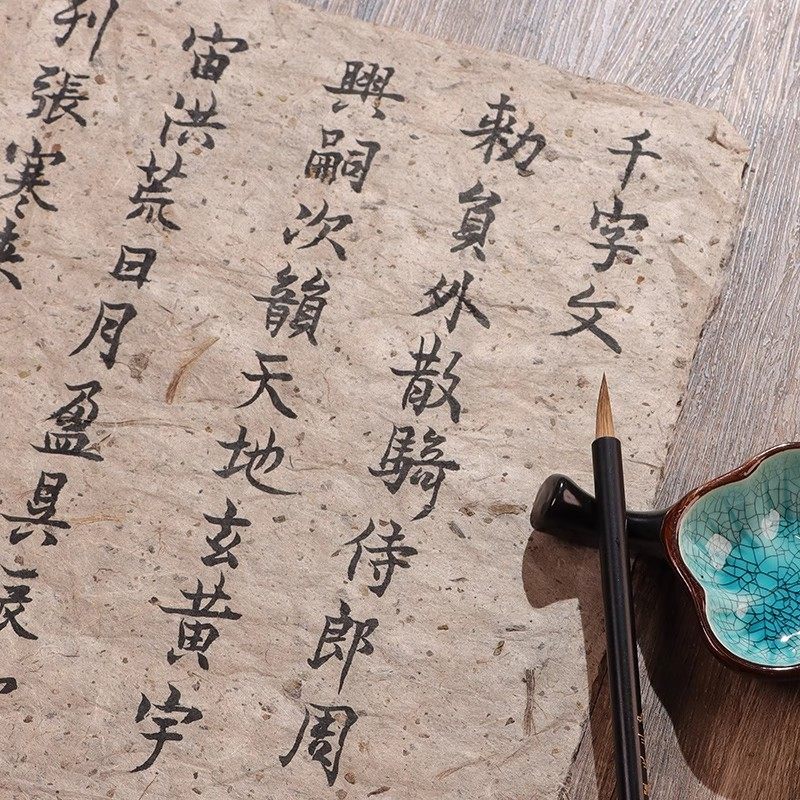 千字文
勅員外散騎侍郎周
興嗣次韻天地玄黄宇
宙洪荒日月盈昃辰
列張寒